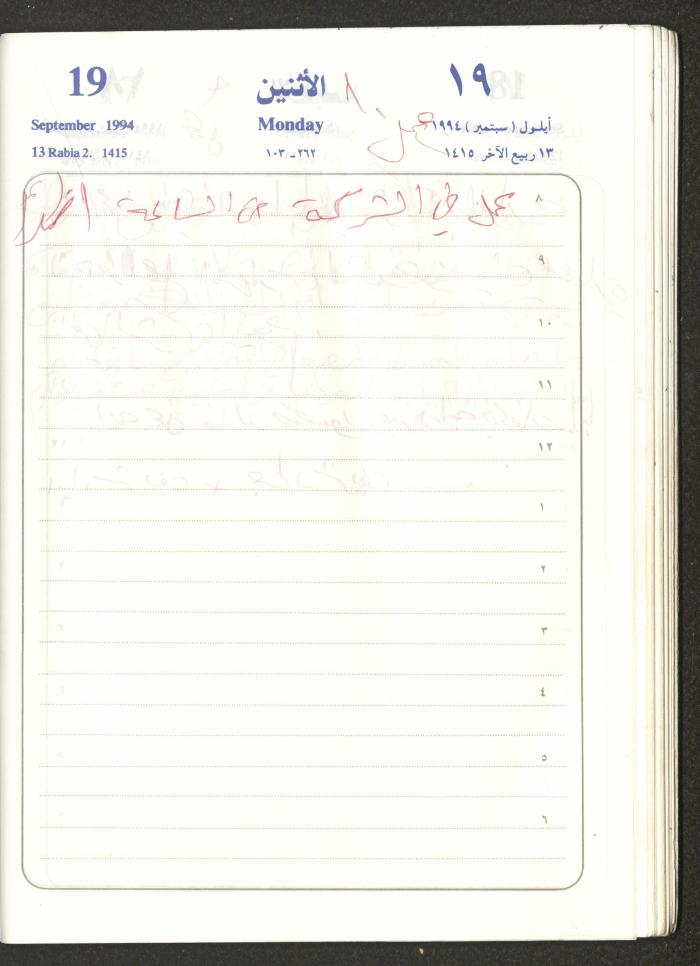 19 الأثنين ١٩
September 1994 Monday أيلول (سبتمبر) ١٩٩٤
13 Rabia 2. 1415 ٢٦٢-١٠٣ ١٣ ربيع الآخر ١٤١٥
عمل ٨
٨ عمل في الشركة من الساعة
٩
١٠
١١
١٢
١
٢
٣
٤
٥
٦